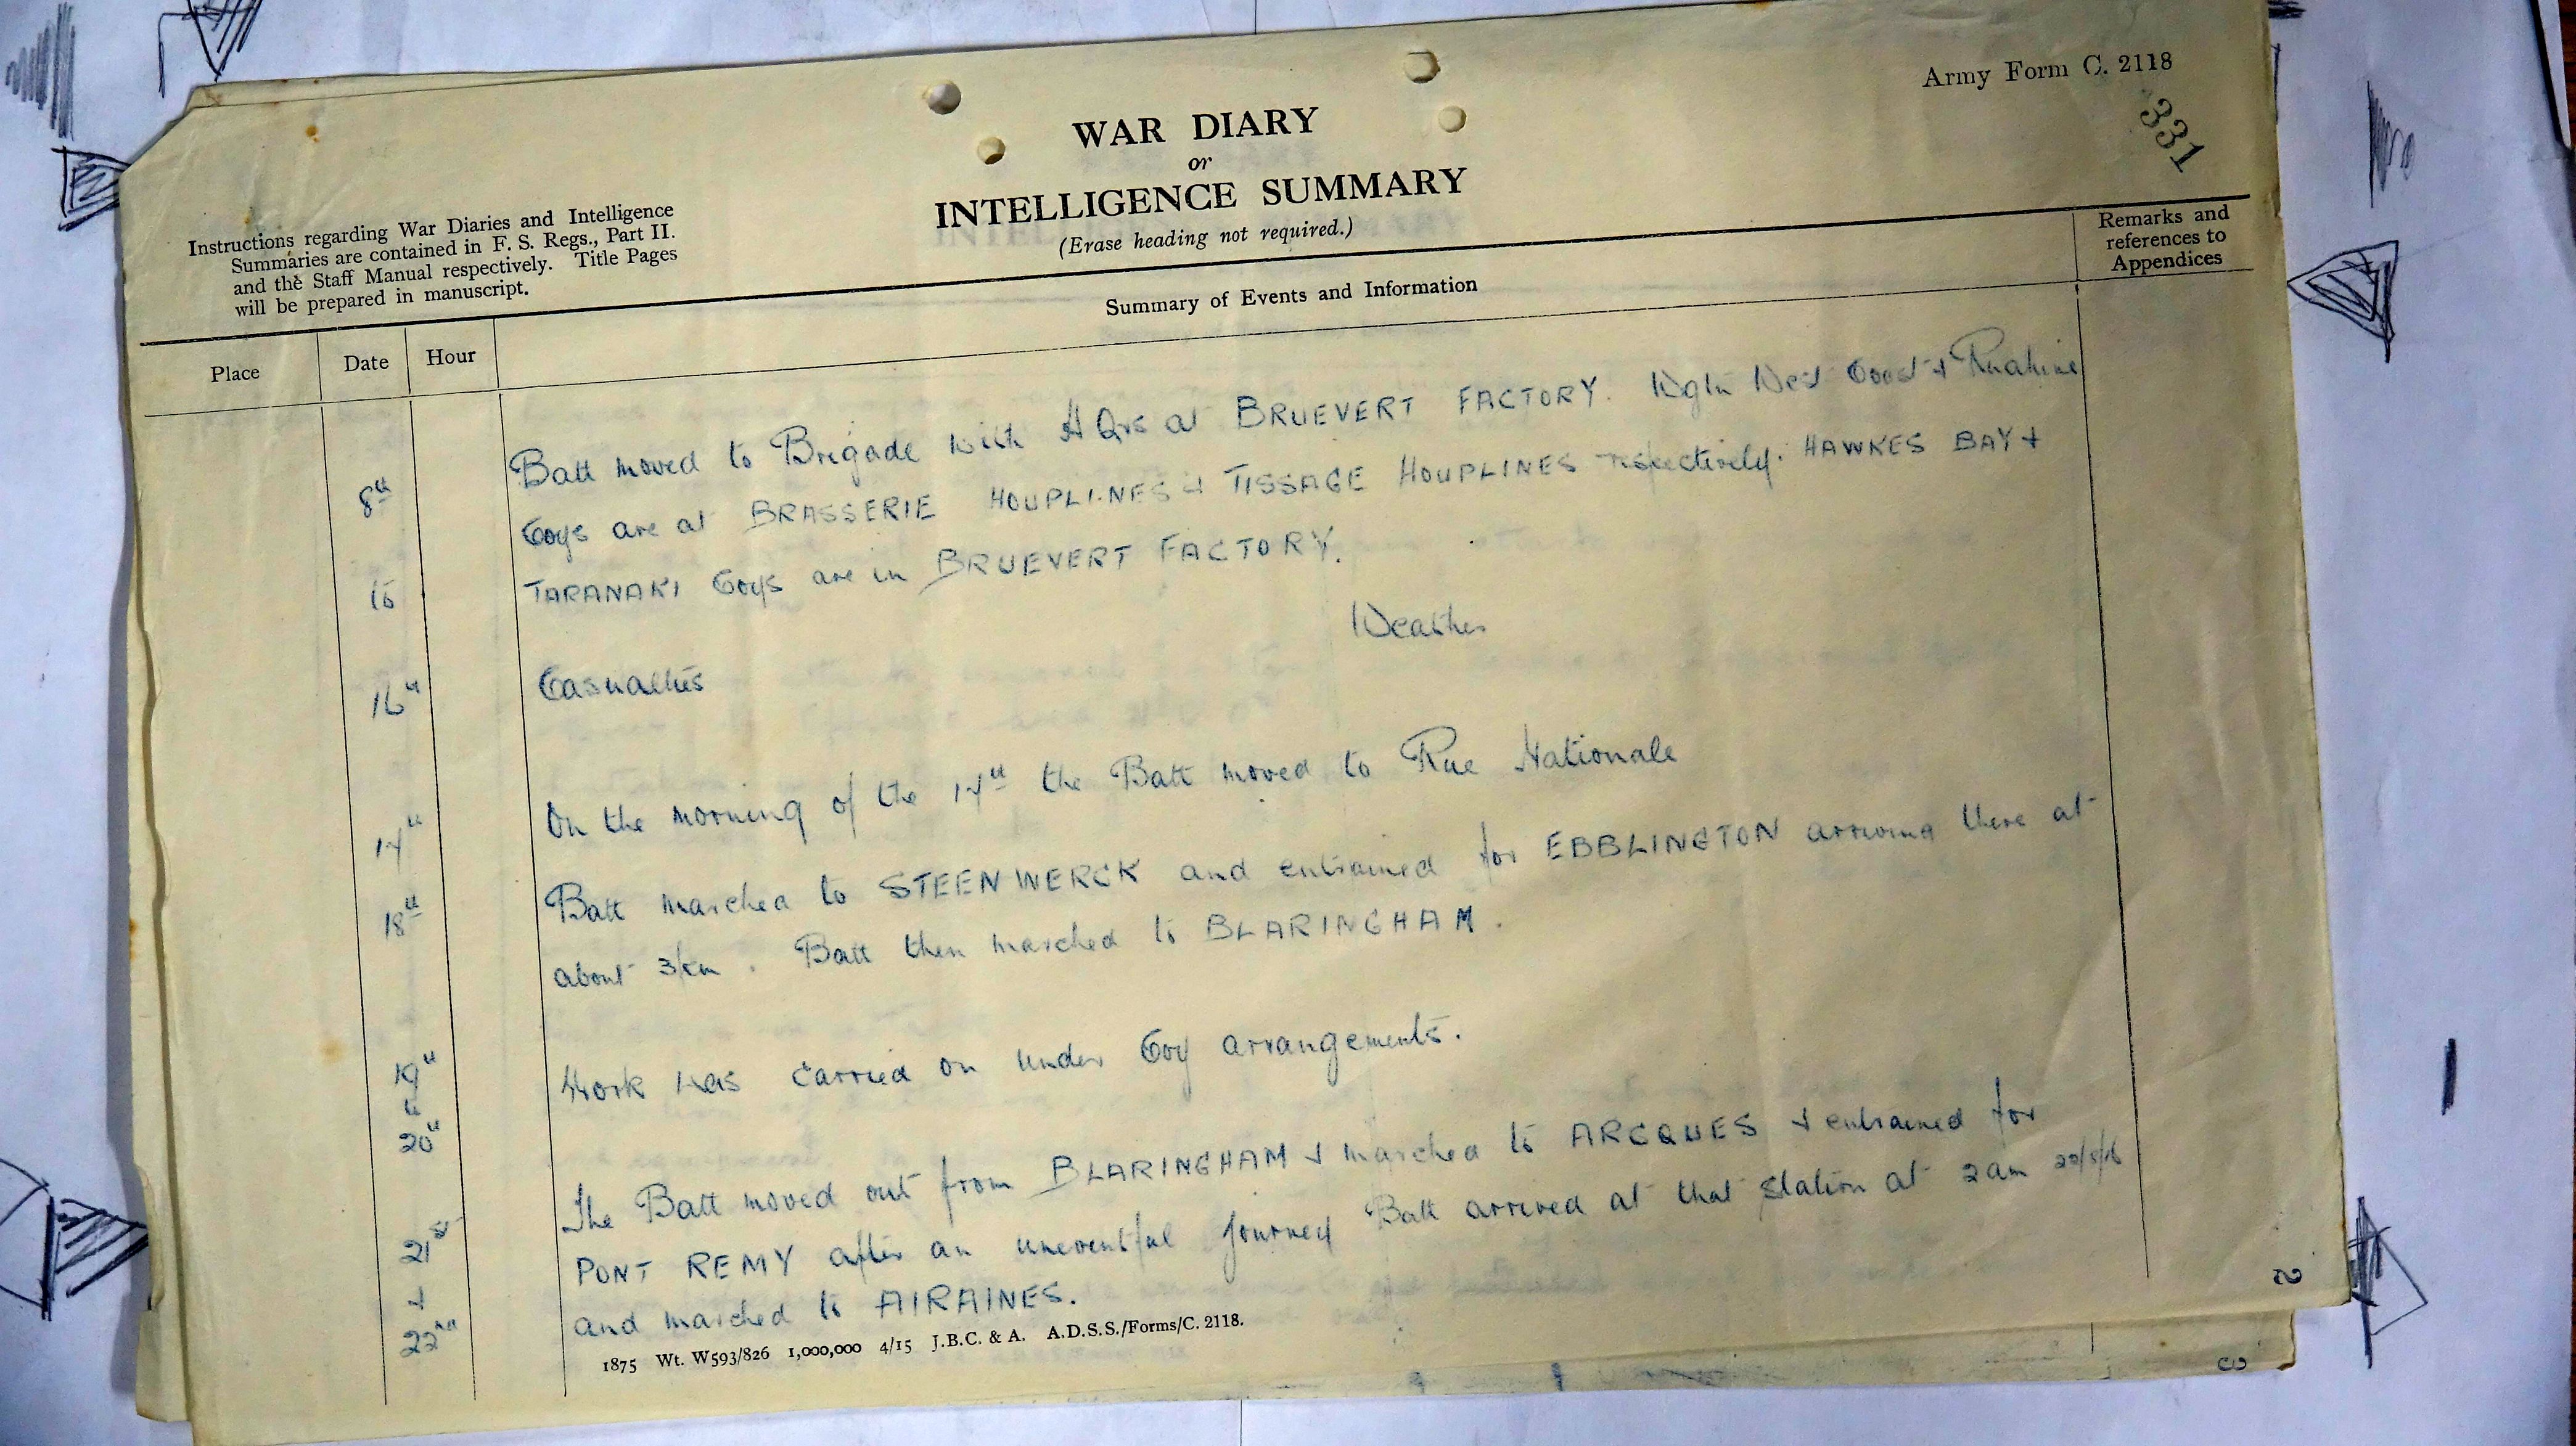 Army Form C. 2118
331
WAR DIARY
or
INTELLIGENCE SUMMARY
(Erase heading not required.)
Instructions regarding War Diaries and Intelligence
Summaries are contained in F. S. Regs., Part II.
and the Staff Manual respectively. Title Pages
will be prepared in manuscript.
Remarks and
references to
Appendices
Summary of Events and Information
Place Date Hour
8th Batt moved to Brigade with HQrs at BRUEVERT FACTORY. Wgtn West Coast + Ruahine
Coys are at BRASSERIE HOUPLINES + TISSAGE HOUPLINES respectively. HAWKES BAY +
to TARANAKI Coys are in BRUEVERT FACTORY.
Weather
16th Casualties
17th On the morning of the 17th the Batt moved to Rue Nationale
18th Batt marched to STEENWERCK and entrained for EBBLINGTON arriving there at
about 3 Batt then marched to BLARINGHAM.
19th Work was carried on under Coy arrangements.
20th
The Batt moved out from BLARINGHAM + marched to ARCQUES + entrained for
21st PONT REMY after an uneventful journey Batt arrived at that station at 2 am 22/8/16
+ and marched to AIRAINES.
22nd
1875 Wt. W593/826 1,000,000 4/15 J.B.C. & A. A.D.S.S./Forms/C. 2118.
2
3